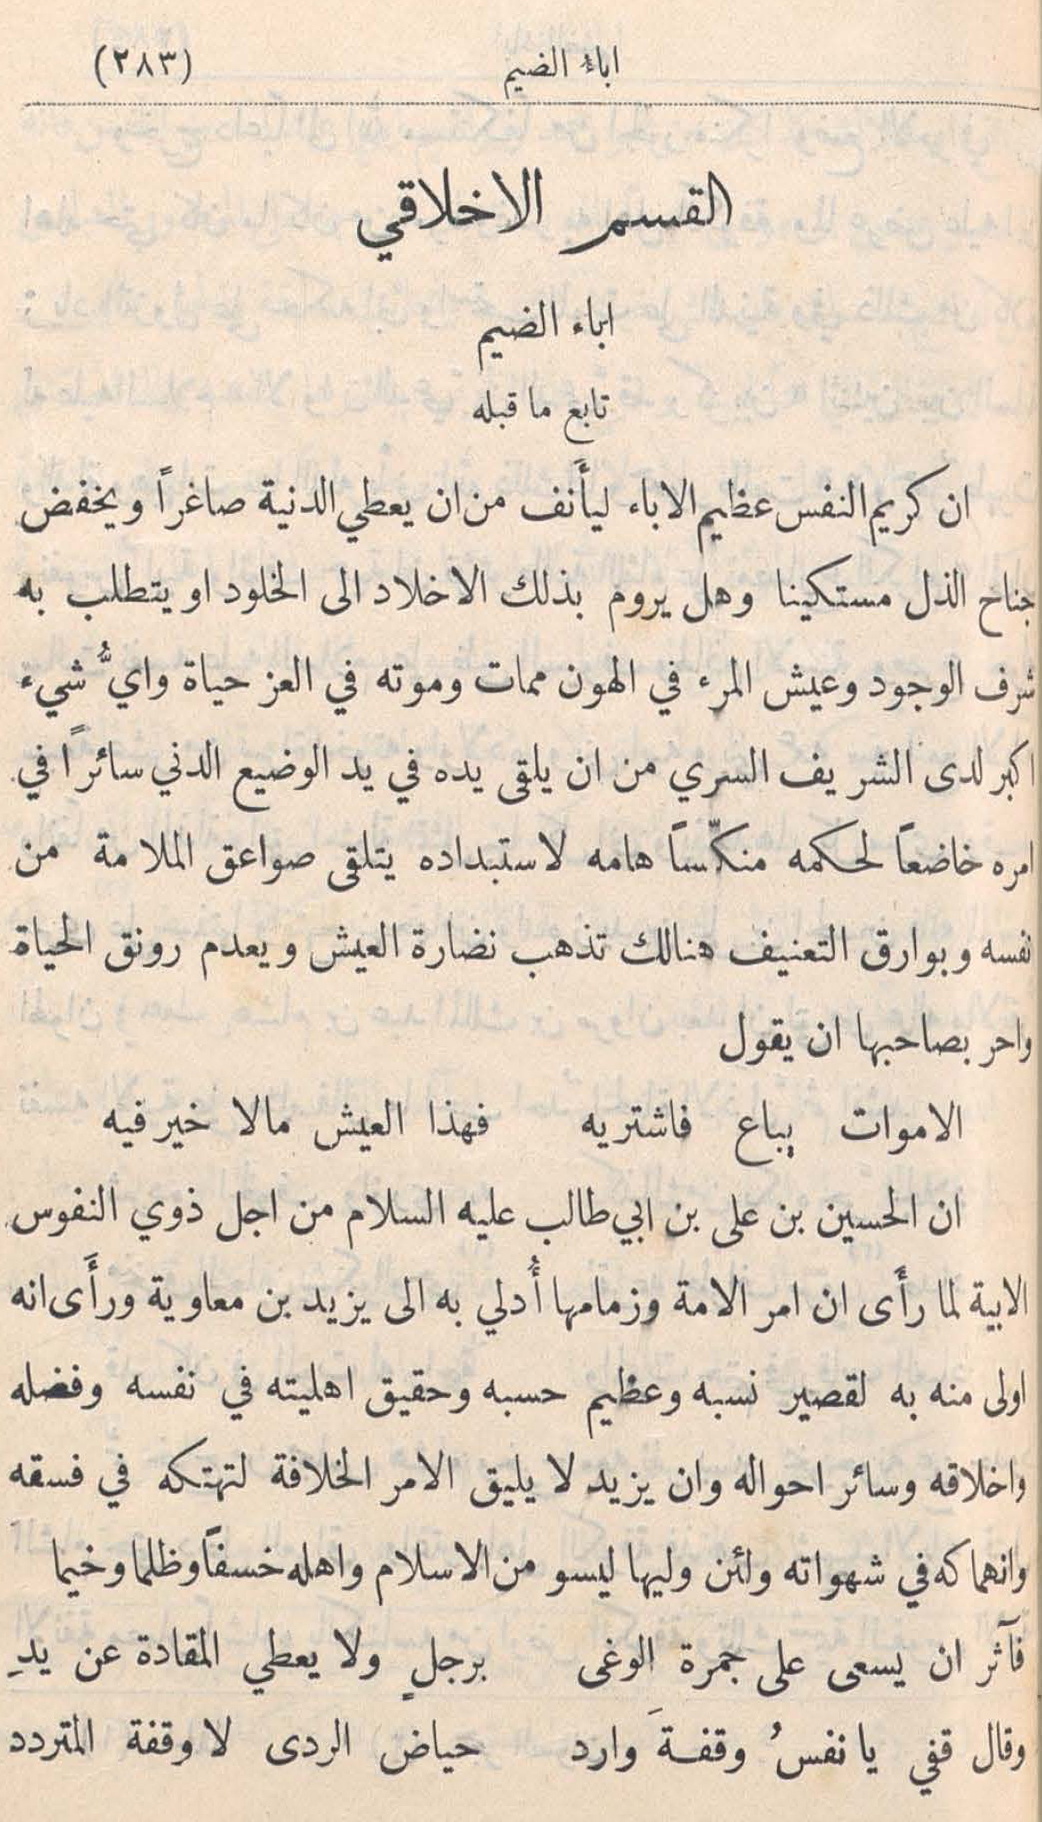 اباء الضيم (٢٨٣)
القسم الاخلاقي
اباء الضيم
تابع ما قبله
ان كريم النفس عظيم الاباء ليأَنف من ان يعطي الدنية صاغراً ويخفض
جناح الذل مستكينا وهل يروم بذلك الاخلاد الى الخلود او يتطلب به
شرف الوجود وعيش المرء في الهون ممات وموته في العز حياة وايُّ شيء
اكبر لدى الشريف السري من ان يلقى يده في يد الوضيع الدني سائراً في
امره خاضعاً لحكمه منكّساً هامه لاستبداده يتلقى صواعق الملامة من
نفسه وبوارق التعنيف هنالك تذهب نضارة العيش ويعدم رونق الحياة
واحر بصاحبها ان يقول
الاموات يباع فاشتريه فهذا العيش مالا خير فيه
ان الحسين بن على بن ابي طالب عليه السلام من اجل ذوي النفوس
الابية لما رأَى ان امر الامة وزمامها أُدلي به الى يزيد بن معاوية ورأَى انه
اولى منه به لقصير نسبه وعظيم حسبه وحقيق اهليته في نفسه وفضله
واخلاقه وسائر احواله وان يزيد لا يليق الامر الخلافة لتهتكه في فسقه
وانهماكه في شهواته ولئن وليها ليسو من الاسلام واهله خسفاً وظلما وخيما
فآثر ان يسعى على جمرة الوغى برجلٍ ولا يعطي المقادة عن يدِ
وقال قفي يا نفسُ وقفةَ وارد حياض الردى لا وقفة المتردد